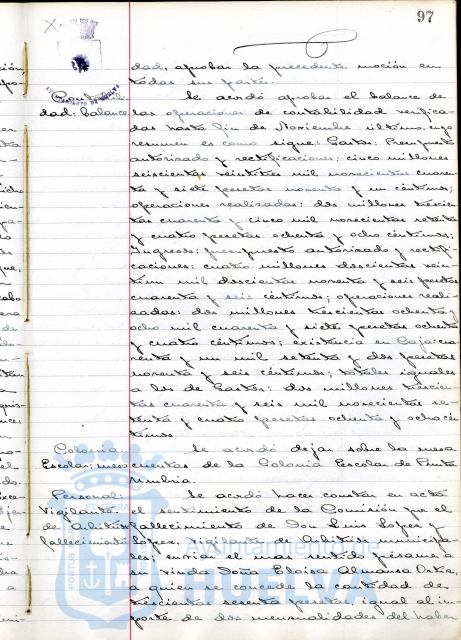 97
AYUNTAMIENTO DE HUELVA
dad, aprobar la precedente moción en
todas sus partes.
Contabili-
dad: balance
Se acordó aprobar el balance de
las operaciones de contabilidad verifica-
das hasta fin de Noviembre último, cuyo
resumen es como sigue: Gastos: Presupuesto
autorizado y rectificaciones: cinco millones
seiscientos veintitres mil novecientas cuaren-
ta y siete pesetas noventa y un céntimos;
operaciones realizadas: dos millones trescien-
tas cuarenta y cinco mil novecientas setenta
y cuatro pesetas ochenta y ocho céntimos;
Ingresos: presupuesto autorizado y rectifi-
caciones: cuatro millones doscientas vein-
tiun mil doscientas noventa y seis pesetas
cuarenta y seis céntimos; operaciones reali-
zadas: dos millones trescientas ochenta y
ocho mil cuarenta y siete pesetas ochenta
y cuatro céntimos; existencia en Caja: cua-
renta y un mil setenta y dos pesetas
noventa y seis céntimos; totales iguales
a los de Gastos: dos millones trescien-
tas cuarenta y seis mil novecientas se-
tenta y cuatro pesetas ochenta y ocho cén-
timos.
Colonia
Escolar:
Se acordó dejar sobre la mesa
cuentas de la Colonia Escolar de Punta
Umbria.
Personal:
Vigilante
de Arbitrios
fallecimiento
Se acordó haces constar en acta
el sentimiento de la Comisión por el
fallecimiento de Don Luis Lopez y
Lopez, vigilante de Arbitrios municipa-
les; enviar el mas sentido pésame a
su viuda Doña Eloisa Almansa
a quien se concede la cantidad de
trescientas sesenta pesetas, igual al im-
porte de dos mensualidades del haber
Ayuntamiento de
HUELVA